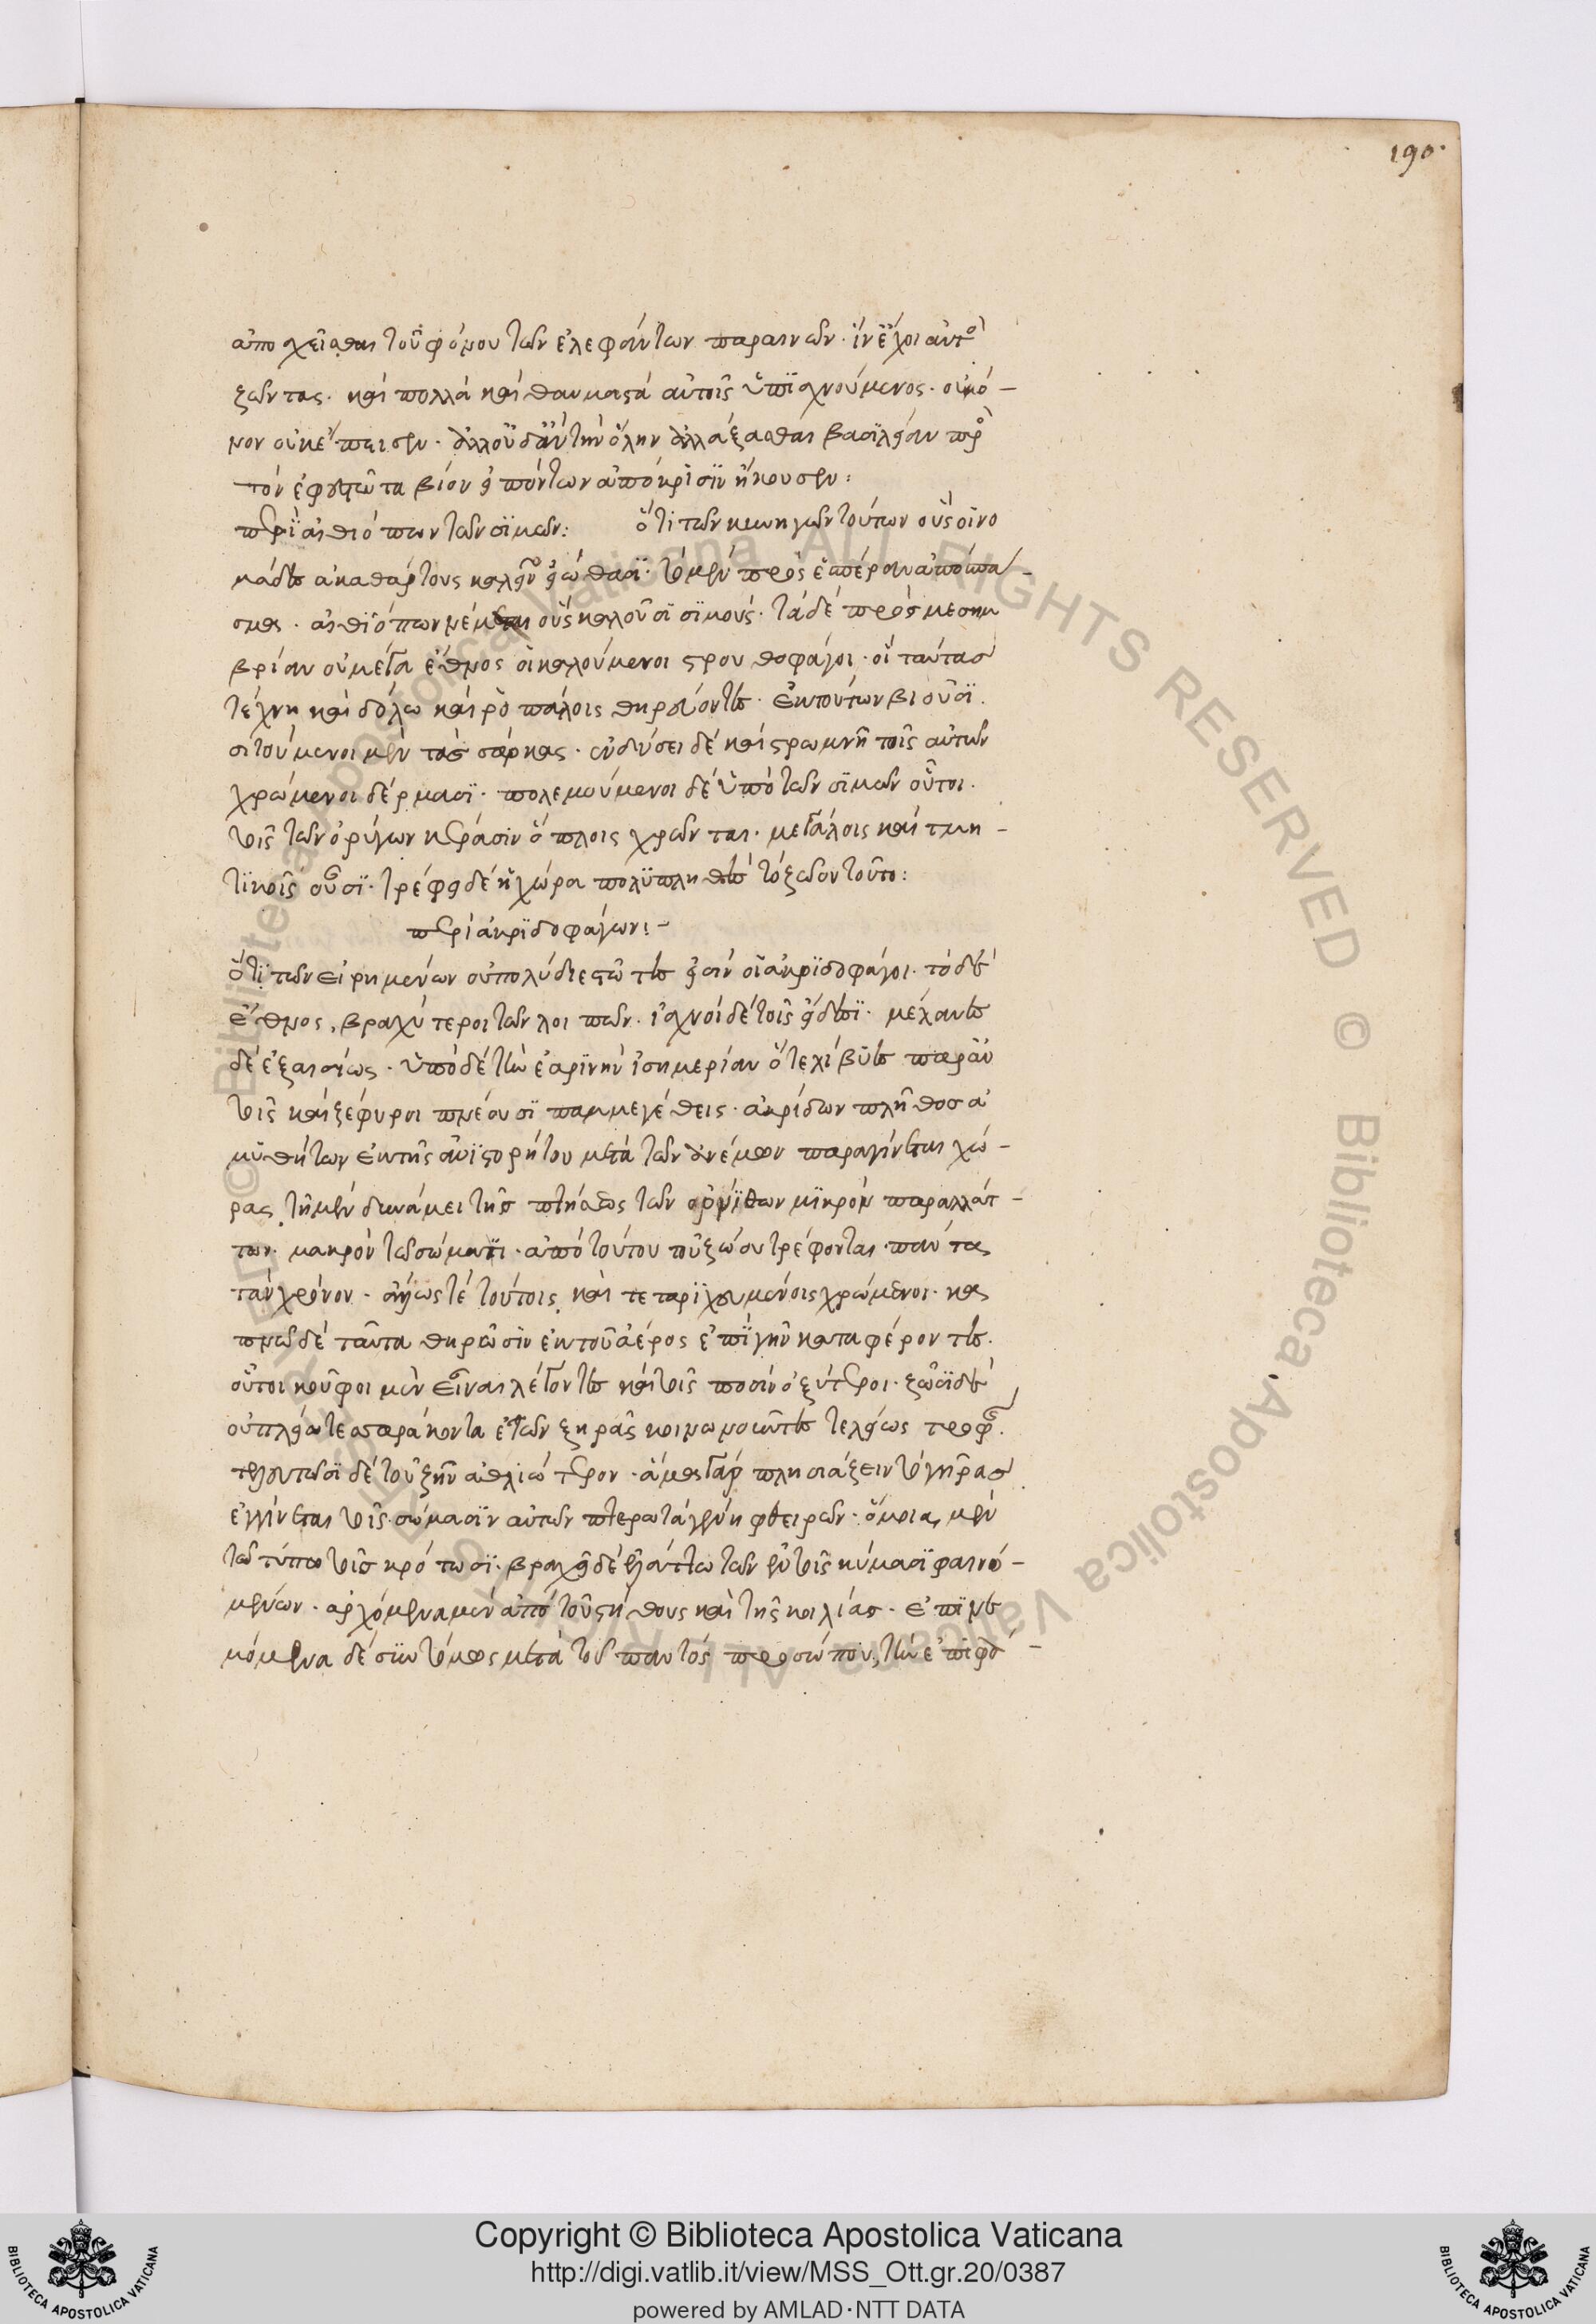 190.
ἀποσχέσθαι τοῦ φόνου τῶν ἐλεφάντων παραινῶν. ἵν' ἔχοι αὐτοὺς
ζῶντας. καὶ πολλὰ καὶ θαυμαστὰ αὐτοῖς ὑπισχνούμενος. οὐ μό-
νον οὐκ ἔπεισεν. ἀλλ' οὐδ' ἂν τὴν ὅλην ἀλλάξασθαι βασιλείαν πρὸς
τὸν ἐφεστῶτα βίον εἰπόντων ἀπόκρισιν ἤκουσεν:
περὶ αἰθιόπων τῶν σιμῶν: ὅτι τῶν κυνηγῶν τούτων οὓς οἱ νο
μάδες ἀκαθάρτους καλεῖν εἰώθασι. τὸ μὲν πρὸς ἑσπέραν ἀπόσπα-
σμα. αἰθιόπων νέμεται οὓς καλοῦσι σιμούς. τὰ δὲ πρὸς μεσημ
βρίαν οὐ μέγα ἔθνος οἱ καλούμενοι στρουθοφάγοι. οἳ ταύτας
τέχνη καὶ δόλω καὶ ῥοπάλοις θηρεύοντες. ἐκ τούτων βιοῦσι.
σιτούμενοι μὲν τὰς σάρκας. ἐνδύσει δὲ καὶ στρωμνῆ τοῖς αὐτῶν
χρώμενοι δέρμασι. πολεμούμενοι δὲ ὑπὸ τῶν σιμῶν οὗτοι.
τοῖς τῶν ὀρύγων κέρασιν ὅπλοις χρῶνται. μεγάλοις καὶ τμη-
τικοῖς οὖσι. τρέφει δὲ ἡ χώρα πολυπληθὲς τὸ ζῶον τοῦτο:
περὶ ἀκριδοφάγων:-
ὅτι τῶν εἰρημένων οὐ πολὺ διεστῶτες εἰσὶν οἱ ἀκριδοφάγοι. τόδε
ἔθνος, βραχύτεροι τῶν λοιπῶν. ἰσχνοὶ δὲ τοῖς εἴδεσι. μέλανες
δὲ ἐξαισίως. ὑπὸ δὲ τὴν ἐαρινὴν ἰσημερίαν ὅτε λίβυες παρ' αὐ
τοῖς καὶ ζέφυροι πνέουσι παμμεγέθεις. ἀκρίδων πλῆθος ἀ
μυθήτων ἐκ τῆς ἀνιστορήτου μετὰ τῶν ἀνέμων παραγίνεται χώ-
ρας, τῆ μὲν δυνάμει τῆς πτήσεως τῶν ὀρνίθων μικρὸν παραλλάτ-
των. μακρὸν τῶ σώματι. ἀπὸ τούτου τοῦ ζώου τρέφονται πάντα
τὸν χρόνον. ἄλλως τὲ τούτοις, καὶ τεταριχευμένοις χρώμενοι. κα
πνῶ δὲ ταῦτα θηρῶσιν ἐκ τοῦ ἀέρος ἐπὶ γῆν καταφέροντες.
οὗτοι κοῦφοι μὲν εἶναι λέγονται καὶ τοῖς ποσὶν ὀξύτεροι. ζῶσι δὲ
οὐ πλείω τεσσαράκοντα ἐτῶν ξηρᾶς κοινωνοῦντες τελείως τροφῆς.
τελευτῶσι δὲ τοῦ ζῆν ἀθλιώτερον. ἅμα γὰρ πλησιάζειν τὸ γῆρας
ἐγγίνεται τοῖς σώμασιν αὐτῶν πτερωτὰ γένη φθειρῶν. ὅμοια, μὲν
τῶ τύπω τοῖς κρότωσι. βραχεῖ δὲ ἐλάττω τῶν ἐν τοῖς κύμασι φαινο-
μένων. ἀρχόμενα μὲν ἀπὸ τοῦ στήθους καὶ τῆς κοιλίας. ἐπινε
μόμενα δὲ σὺν τόμος μετὰ τοῦ παντὸς προσώπου, τὴν ἐπιφά-
Copyright © Biblioteca Apostolica Vaticana
http://digi.vatlib.it/view/MSS_Ott.gr.20/0387
powered by AMLAD·NTT DATA